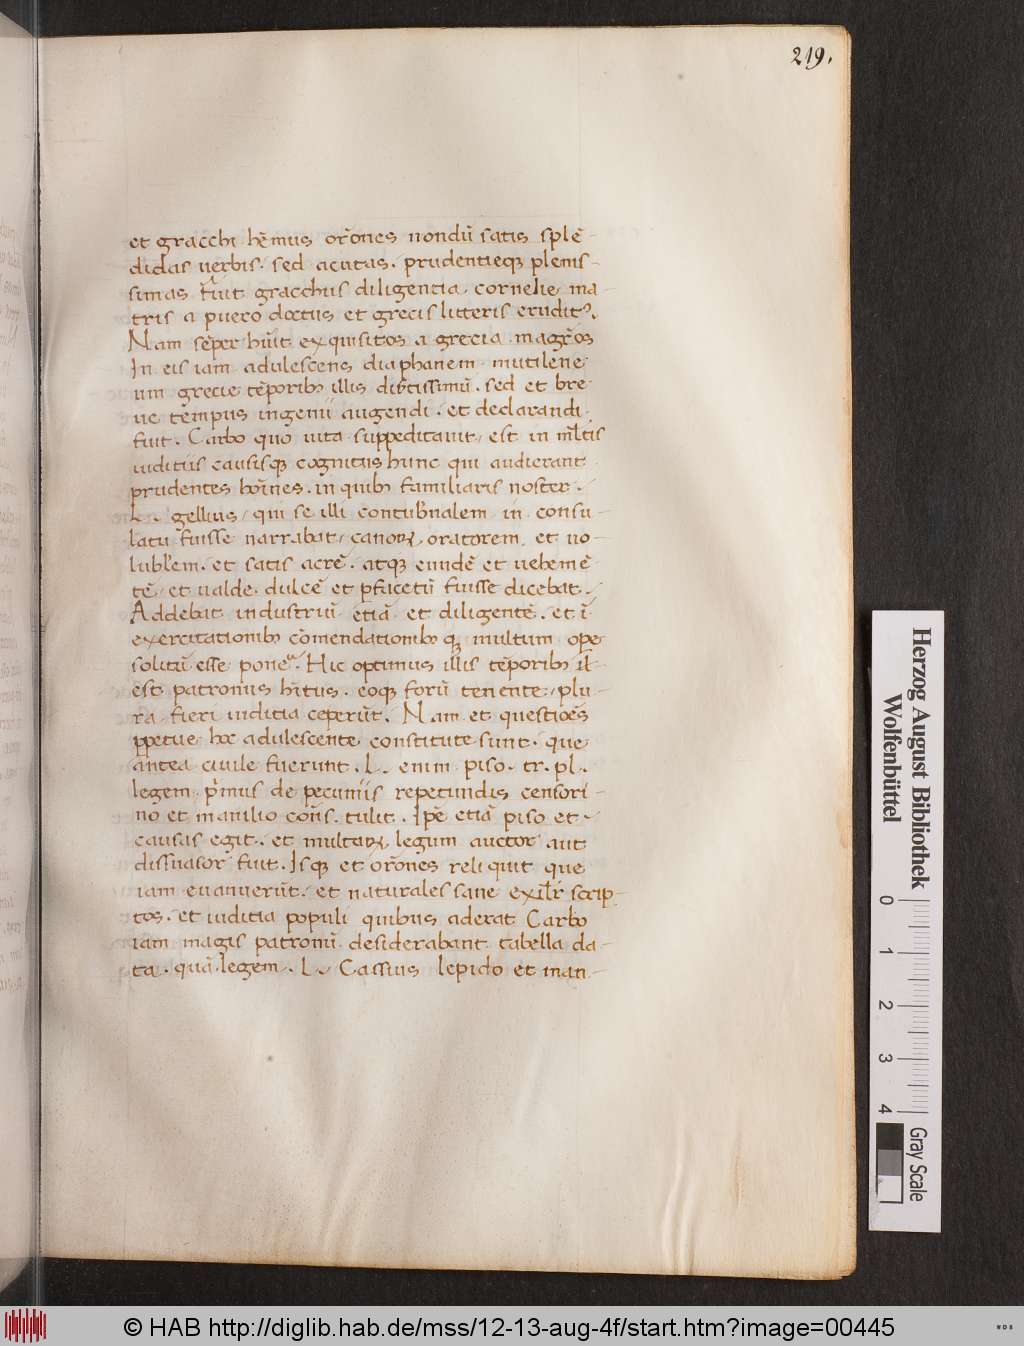 219.
et gracchi hēmus or̃ones nondū satis splē-
didas uerbis. sed acutas. prudentieq; plenis-
simas fuit gracchus diligentia, cornelie ma-
tris a puero doctus et grecis litteris erudit9.
Nam sēper hūit exquisitos a grecia magr̃os
In eis iam adulescens diaphanem mutilene
um grecie tēporib; illis disertissimū. sed et bre
ue tempus ingenii augendi. et declarandi.
fuit. Carbo quo uita suppeditauit, est in ml̃tis
iuditiis causisq; cognitus hunc qui audierant
prudentes hoīnes. in quib; familiaris noster.
L. gellius, qui se illi contub̃nalem in consu-
latu fuisse narrabat, canorꝝ oratorem et uo-
lubl̃em. et satis acrē. atq; eundē et uehemē-
tē, et ualde dulcē et ꝑfacetū fuisse dicebat.
Addebat industriū etiā et diligentē. et ī
exercitationib; cōmendationib; q; multum opere
solitū esse ponere. Hic optimus illis tēporib; il-
est patronus hītus. eoq; forū tenente, plu-
ra fieri iuditia ceperūt. Nam et questiōes
ꝑpetue hoc adulescente constitute sunt. que
antea ciuile fuerunt. L. enim piso. tr. pl.
legem primus de pecuniis repetundis censori-
no et manilio cons̃. tulit. Ipē etiā piso et
causas egit. et multarꝝ legum auctor aut
dissuasor fuit. Isq; et or̃ones reliquit que
iam euanuerūt. et naturales sane exilr̃ scrip-
tos. et iuditia populi quibus aderat Carbo
iam magis patronū desiderabant tabella da-
ta. quā legem. L. Cassius lepido et man-
Herzog August Bibliothek
Wolfenbüttel
0 1 2 3 4
Gray Scale
© HAB http://diglib.hab.de/mss/12-13-aug-4f/start.htm?image=00445